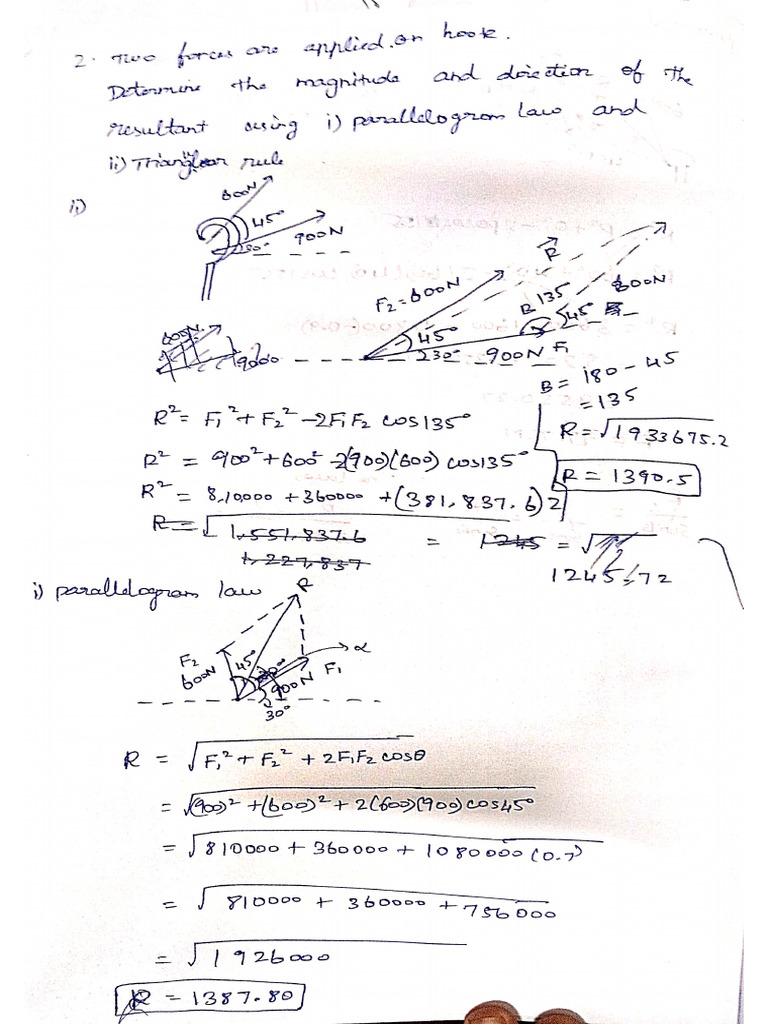 2. Two forces are applied on hook.
Determine the magnitude and direction of the
resultant using i) parallelogram law and
ii) Triangular rule
ii)
600N
45°
900N
30°
F₂ = 600N
R
45°
30°
900N F₁
B 135
45°
600N
600N
B = 180 - 45
= 135
R² = F₁² + F₂² - 2F₁F₂ cos135°
R² = 900² + 600² - 2(900)(600) cos135°
R² = 8,10,000 + 360000 + (381,837.6)2
R = √1933675.2
R = 1390.5
R = √1,551,837.6 = 1245 = √
1,227,837
1245.72
i) parallelogram law
R
F₂
600N
45°
α
F₁
900N
30°
R = √F₁² + F₂² + 2F₁F₂ cosθ
= √(900)² + (600)² + 2(600)(900) cos45°
= √810000 + 360000 + 1080000 (0.7)
= √810000 + 360000 + 756000
= √1926000
R = 1387.80